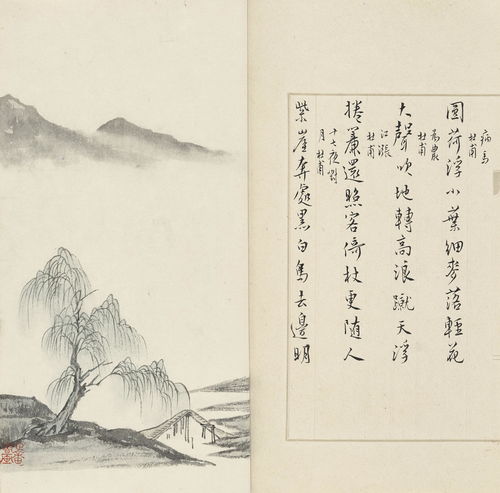 病馬
杜甫
圓荷浮小葉細麥落輕花
為農
杜甫
大聲吹地轉高浪蹴天浮
江漲
杜甫
捲簾還照客倚杖更隨人
十七夜對
月 杜甫
紫崖奔處黑白鳥去邊明